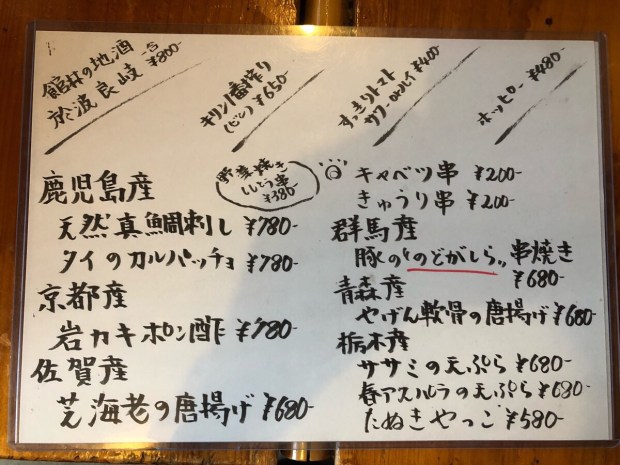 館林の地酒
於波良岐 -5 ¥800-
キリン一番搾り
(ビン) ¥650-
すっきりトマト
サワー orハイ ¥400
ホッピー ¥480-
鹿児島産
天然真鯛刺し ¥780-
タイのカルパッチョ ¥780-
京都産
岩カキポン酢 ¥780-
佐賀産
芝海老の唐揚げ ¥680-
野菜焼き
ししとう串
¥380-
キャベツ串 ¥200-
きゅうり串 ¥200-
群馬産
豚の“のどがしら„串焼き
¥680-
青森産
やげん軟骨の唐揚げ ¥680-
栃木産
ササミの天ぷら ¥680-
春アスパラの天ぷら ¥680-
たぬきやっこ ¥580-